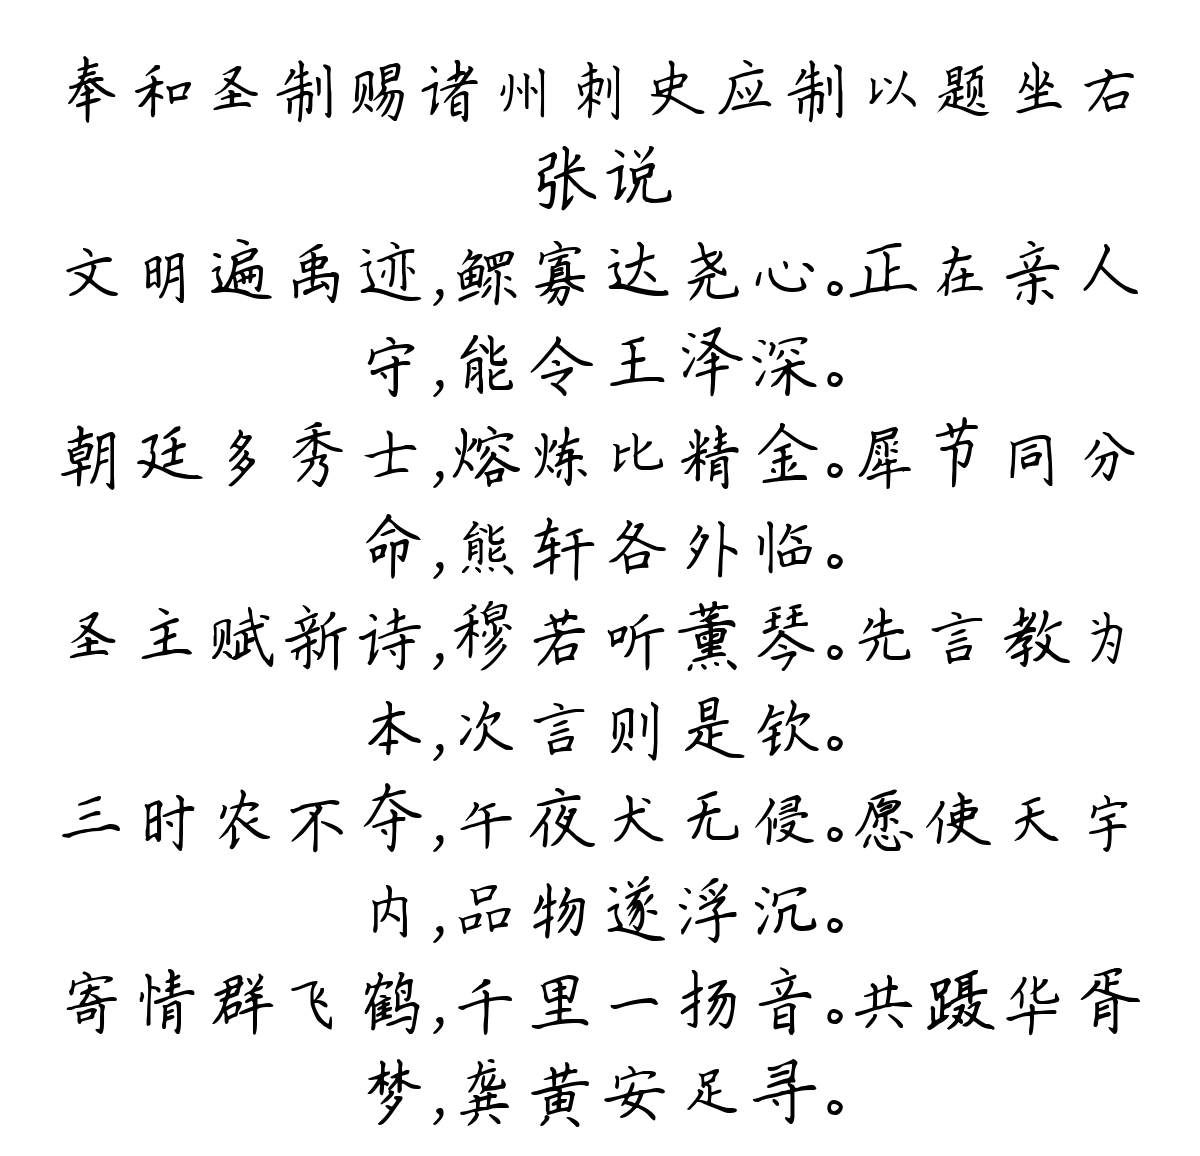 奉和圣制赐诸州刺史应制以题坐右
张说
文明遍禹迹,鳏寡达尧心。正在亲人
守,能令王泽深。
朝廷多秀士,熔炼比精金。犀节同分
命,熊轩各外临。
圣主赋新诗,穆若听薰琴。先言教为
本,次言则是钦。
三时农不夺,午夜犬无侵。愿使天宇
内,品物遂浮沉。
寄情群飞鹤,千里一扬音。共蹑华胥
梦,龚黄安足寻。